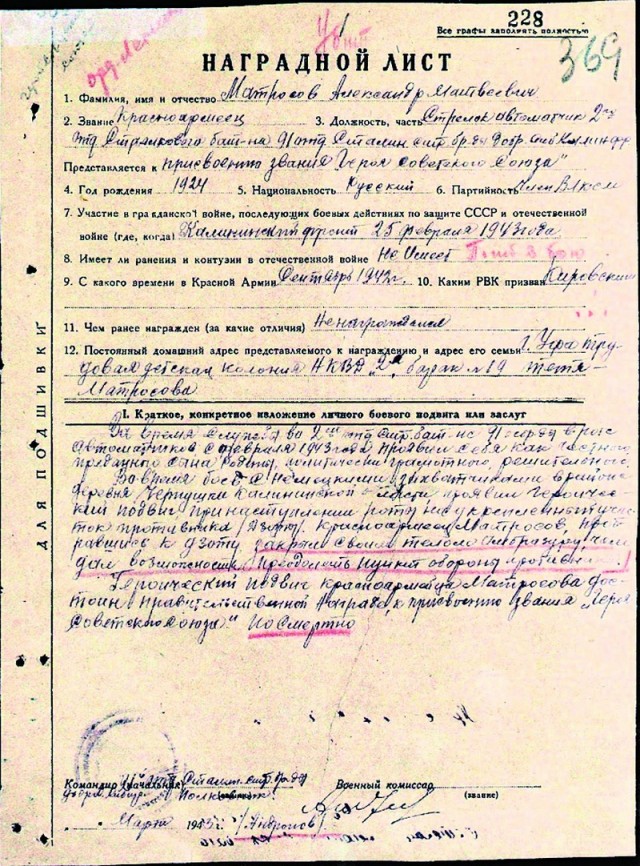 228
Все графы заполнять полностью
369
Убит
орд. Ленина
НАГРАДНОЙ ЛИСТ
1. Фамилия, имя и отчество Матросов Александр Матвеевич
2. Звание Красноармеец 3. Должность, часть Стрелок автоматчик 2го
отд Стрелкового бат-на 91 отд Сталин стр. бр-ды добр. сиб Калин фр
Представляется к присвоению звания "Героя Советского Союза"
4. Год рождения 1924 5. Национальность Русский 6. Партийность Член ВЛКСМ
7. Участие в гражданской войне, последующих боевых действиях по защите СССР и отечественной
войне (где, когда) Калининский фронт 25 февраля 1943 года
8. Имеет ли ранения и контузии в отечественной войне Не имеет Погиб в бою
9. С какого времени в Красной Армии Сентябрь 1942г. 10. Каким РВК призван Кировским
11. Чем ранее награжден (за какие отличия) Не награждался
12. Постоянный домашний адрес представляемого к награждению и адрес его семьи г. Уфа тру-
довая детская колония НКВД 2я, барак №19 тетя-
Матросова
I. Краткое, конкретное изложение личного боевого подвига или заслуг
За время службы во 2ом отд стр. бат-не 91 осбр в роте
Автоматчиков с февраля 1943 года проявил себя как честного,
преданного сына Родины, политически грамотного, решительного.
Во время боев с немецкими захватчиками в районе
деревни Чернушки Калининской области проявил героичес-
кий подвиг при наступлении роты на укрепленный учас-
ток противника (дзоты) Красноармеец Матросов, проб-
равшись к дзоту закрыл своим телом амбразуру, чем
дал возможность преодолеть пункт обороны противни
Героический подвиг красноармейца Матросова дос-
тоин правительственной награды, к присвоению звания "Героя
Советского Союза." Посмертно
ДЛЯ ПОДШИВКИ
Командир (начальник) 91й отд Сталин. стр. бр-ды
добров. сибир. Полковник Военный комиссар
(звание)
Март 1943 г. /Андронов/